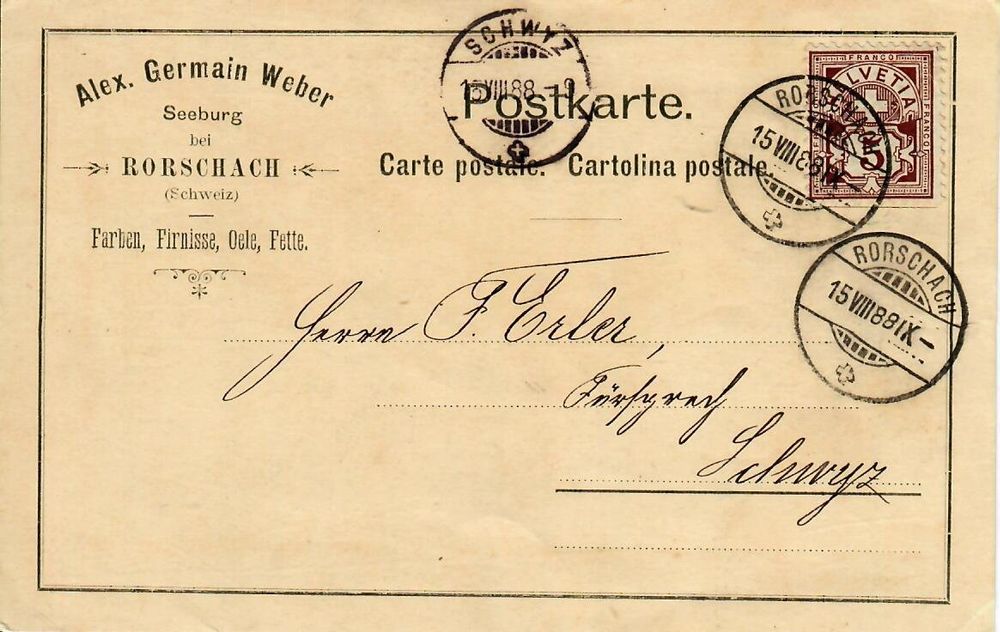 Alex. Germain Weber
Seeburg
bei
RORSCHACH
(Schweiz)
Farben, Firnisse, Oele, Fette.
SCHWYZ
VIII 88 - 9
Postkarte.
Carte postale. Cartolina postale.
FRANCO
HELVETIA
FRANCO
FRANCO
5
RORSCHACH
15 VIII 88 IX -
RORSCHACH
15 VIII 88 IX -
Herrn F. Erler,
Fürsprech
Schwyz